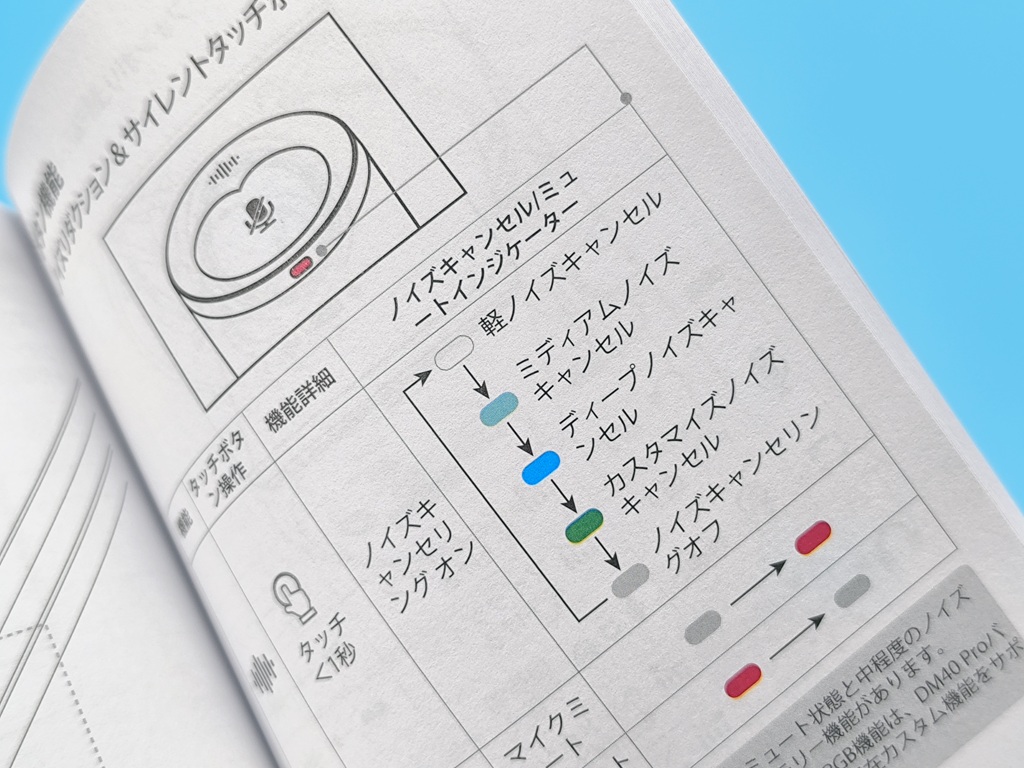 ン機能
イズリダクション＆サイレントタッチボ
ノイズキャンセル/ミュ
ートインジケーター
機能
タッチボタ
ン操作
機能詳細
タッチ
<1秒
ノイズキ
ャンセリ
ングオン
軽ノイズキャンセル
ミディアムノイズ
キャンセル
ディープノイズキャ
ンセル
カスタマイズノイズ
キャンセル
ノイズキャンセリン
グオフ
マイクミ
ート
ミュート状態と中程度のノイズ
モリー機能があります。
RGB機能は、DM40 Proパ
在カスタム機能をサポ